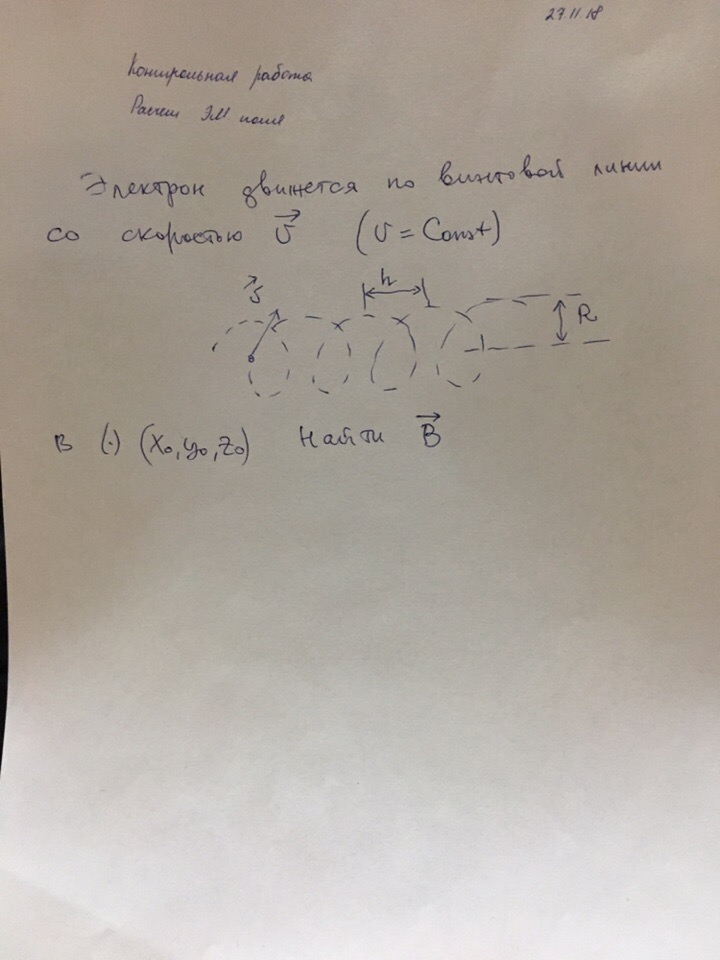 27.11.18
Контрольная работа
Расчет ЭМ поля
Электрон движется по винтовой линии
со скоростью v⃗ (v = Const)
v⃗ h
R
в (·) (x₀, y₀, z₀) Найти B⃗